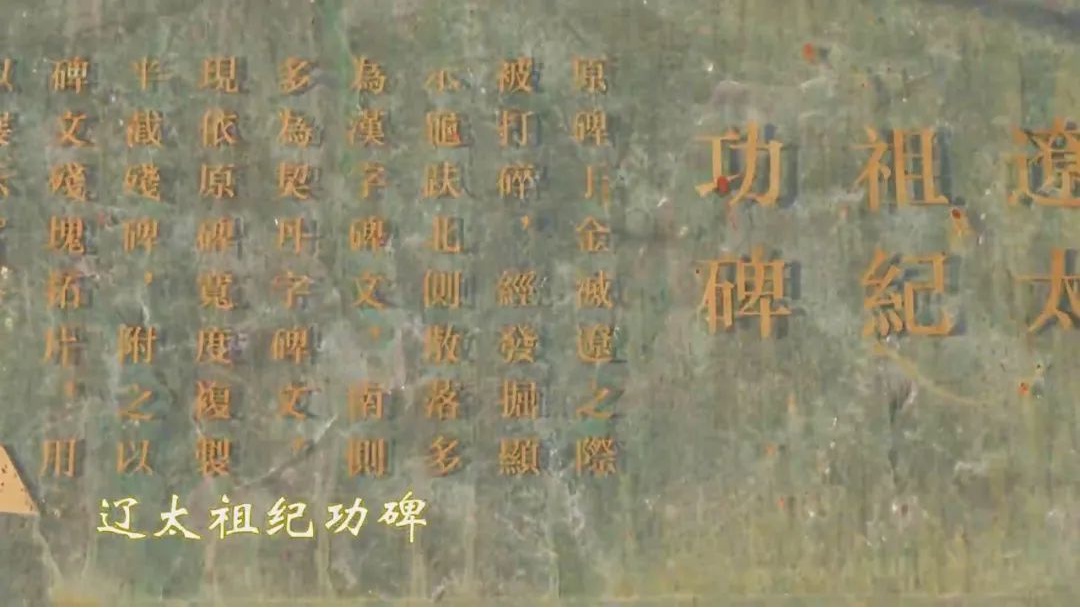 遼太
祖紀
功碑
原碑于金滅遼之際
被打碎，經發掘顯
示龜趺北側散落多
為漢字碑文，南側
多為契丹字碑文，
現依原碑寬度複製
半截殘碑，附之以
碑文殘塊拓片，用
以
辽太祖纪功碑